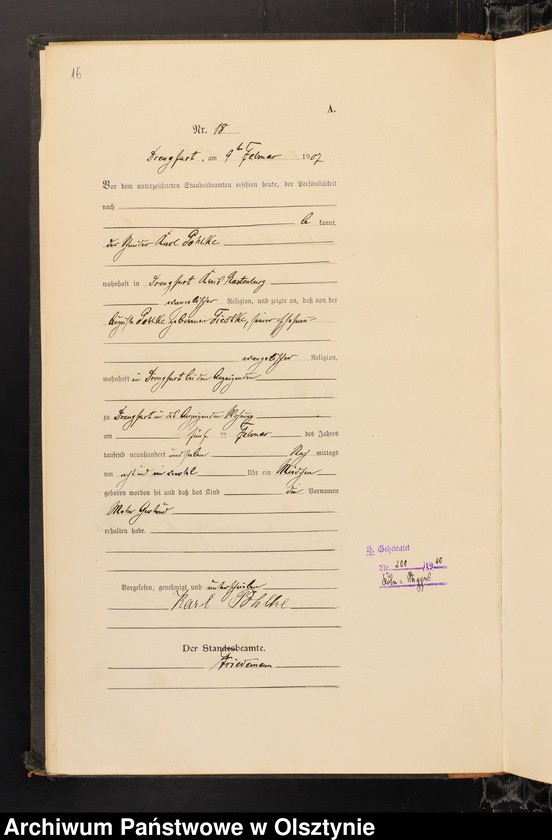 16
A.
Nr. 18
Drengfurt, am 9ten Februar 1907
Vor dem unterzeichneten Standesbeamten erschien heute, der Persönlichkeit
nach
be kannt,
der Schneider Karl Pohlke
wohnhaft in Drengfurt Kreis Rastenburg
evangelischer Religion, und zeigte an, daß von der
Auguste Pohlke geborenen, seiner Ehefrau
evangelischer Religion,
wohnhaft in Drengfurt bei dem Anzeigenden
zu Drengfurt in des Anzeigenden Wohnung
am fünf ten Februar des Jahres
tausend neunhundert und sieben Nach mittags
um acht und ein viertel Uhr ein Mädchen
geboren worden sei und daß das Kind die Vornamen
Gertrud
erhalten habe.
Geheiratet
Nr. 200/1940
Köln =
Vorgelesen, genehmigt und unterschrieben
Karl Pohlke
Der Standesbeamte.
Friedemann
Archiwum Państwowe w Olsztynie